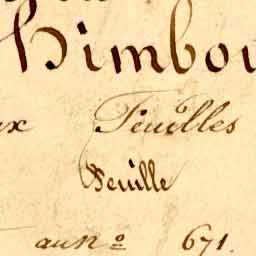 Himbou
ux Feuilles
Feuille
au Nº 671.